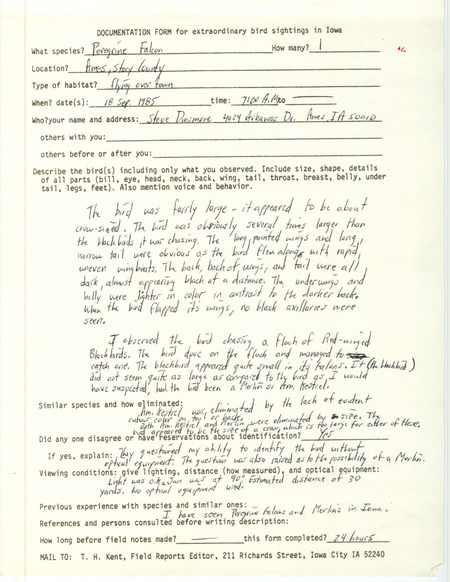 DOCUMENTATION FORM for extraordinary bird sightings in Iowa
What species? Peregrine Falcon How many? 1
Location? Ames, Story County
Type of habitat? flying over town
When? date(s): 18 Sep 1985 time: 7:00 A.M. to
Who? your name and address: Steve Dinsmore 4024 Arkansas Dr. Ames, IA 50010
others with you:
others before or after you:
Describe the bird(s) including only what you observed. Include size, shape, details
of all parts (bill, eye, head, neck, back, wing, tail, throat, breast, belly, under
tail, legs, feet). Also mention voice and behavior.
The bird was fairly large - it appeared to be about
crow-sized. The bird was obviously several times larger than
the blackbirds it was chasing. The long, pointed wings and long,
narrow tail were obvious as the bird flew along with rapid,
uneven wingbeats. The back, back of wings, and tail were all
dark, almost appearing black at a distance. The underwings and
belly were lighter in color in contrast to the darker back.
When the bird flapped it's wings, no black axillaries were
seen.
I observed the bird chasing a flock of Red-winged
Blackbirds. The bird dove on the flock and managed to
catch one. The blackbird appeared quite small in its talons. It (the blackbird)
did not seem quite as large as compared to the bird as I would
have suspected, had the bird been a Merlin or Am. Kestrel.
Similar species and how eliminated:
Am. Kestrel was eliminated by the lack of evident
rufous color on tail or back.
Both Am. Kestrel and Merlin were eliminated by size. The
bird appeared to be the size of a crow, which is to large for either of these.
Did any one disagree or have reservations about identification? Yes
If yes, explain: They questioned my ability to identify the bird without
optical equipment. The question was also raised as to the possibility of a Merlin.
Viewing conditions: give lighting, distance (how measured), and optical equipment:
Light was O.K. Sun was at 90° Estimated distance of 30
yards. No optical equipment used.
Previous experience with species and similar ones:
I have seen Peregrine Falcons and Merlins in Iowa.
References and persons consulted before writing description:
How long before field notes made? this form completed? 24 hours
MAIL TO: T. H. Kent, Field Reports Editor, 211 Richards Street, Iowa City IA 52240